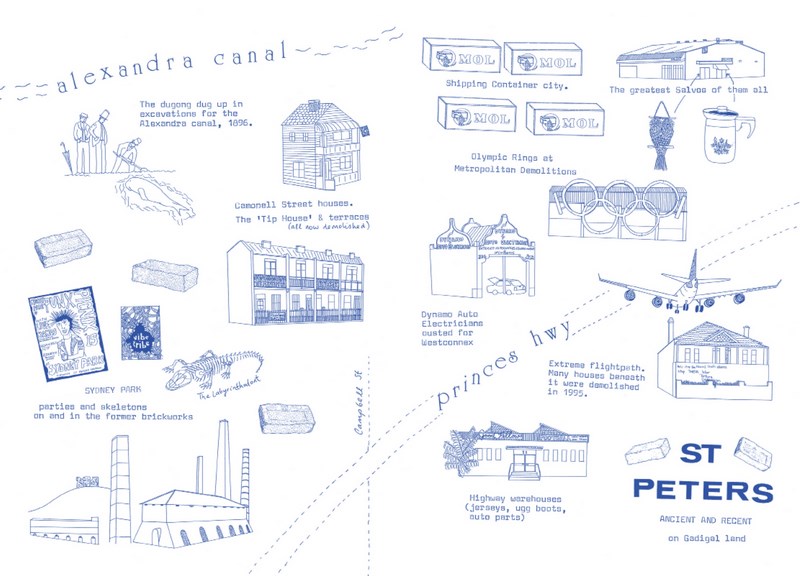 alexandra canal
The dugong dug up in
excavations for the
Alexandra canal, 1896.
Camonell Street houses.
The 'Tip House' & terraces
(all now demolished)
PUNX
PICNIC
SYDNEY PARK
vibe
tribe
SYDNEY PARK
The Labyrinthodont
parties and skeletons
on and in the former brickworks
Campbell St
MOL
MOL
Shipping Container city.
MOL
MOL
The greatest Salvos of them all
Olympic Rings at
Metropolitan Demolitions
Dynamo Auto
Electricians
ousted for
Westconnex
princes hwy
Extreme flightpath.
Many houses beneath
it were demolished
in 1995.
Highway warehouses
(jerseys, ugg boots,
auto parts)
ST
PETERS
ANCIENT AND RECENT
on Gadigal land